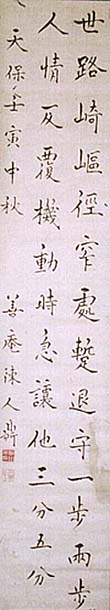 世路崎嶇徑窄處蹔退守一步兩步
人情反覆機動時急讓他三分五分
天保壬寅中秋
善庵陳人鼎